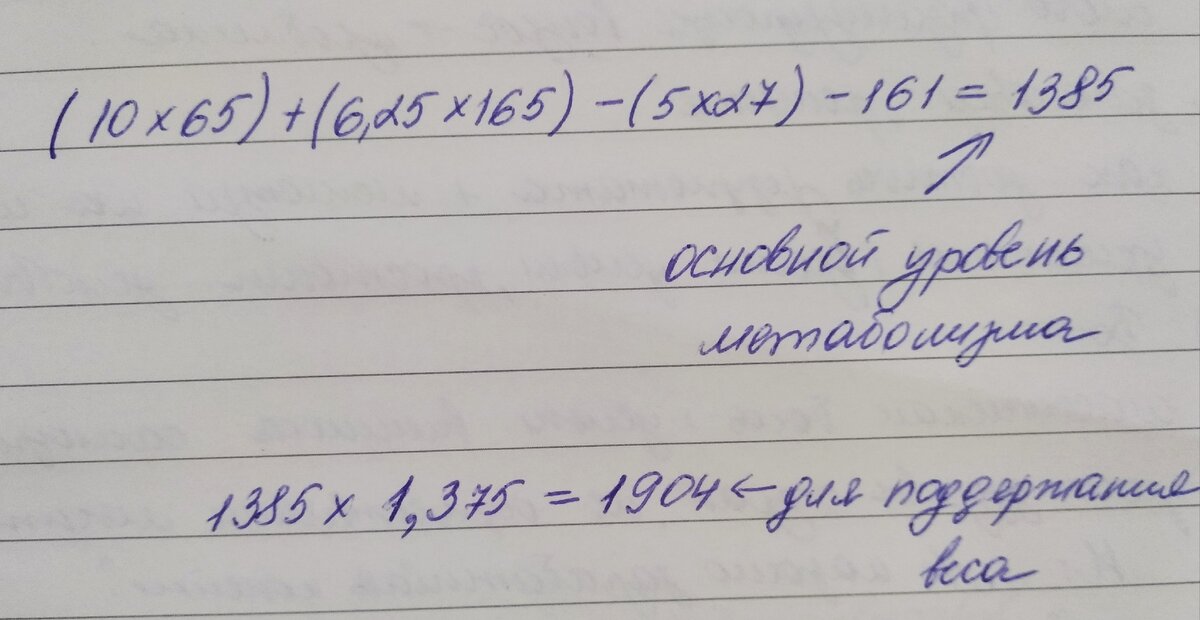 (10×65)+(6,25×165)-(5×27)-161=1385
основной уровень
метаболизма
1385×1,375=1904←для поддержания
веса